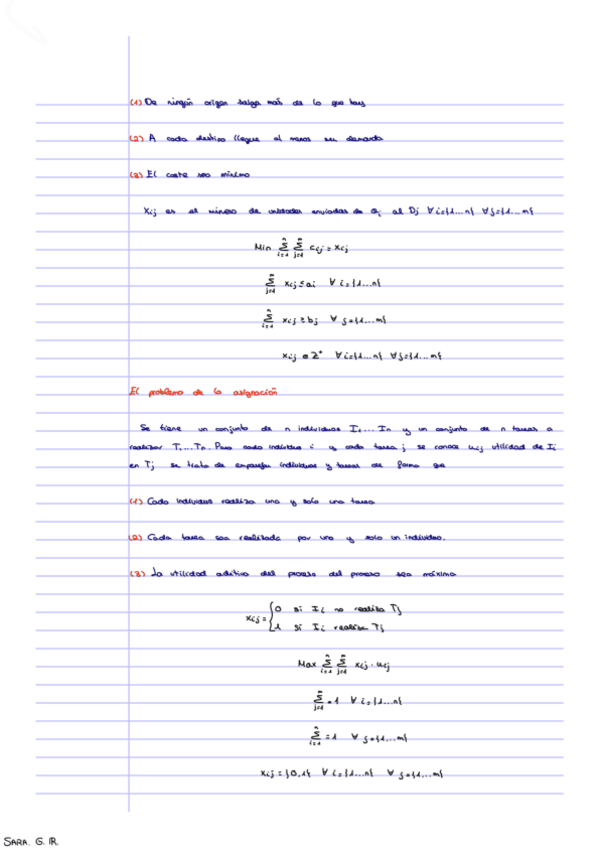 (1) De ningún origen salga más de lo que hay
(2) A cada destino llegue al menos su demanda
(3) El coste sea mínimo
Xij es el número de unidades enviadas de Oi al Dj ∀ i={1...n} ∀ j={1...m}
Min Σ(i=1, n) Σ(j=1, m) cij = xij
Σ(j=1, m) xij ≤ ai ∀ i={1...n}
Σ(i=1, n) xij ≥ bj ∀ j={1...m}
xij ∈ Z⁺ ∀ i={1...n} ∀ j={1...m}
El problema de la asignación
Se tiene un conjunto de n individuos I1...In y un conjunto de n tareas a
realizar T1...Tn. Para cada individuo i y cada tarea j se conoce uij utilidad de Ii
en Tj se trata de emparejar individuos y tareas de forma que
(1) Cada individuo realiza una y solo una tarea
(2) Cada tarea sea realizada por uno y solo un individuo.
(3) La utilidad aditiva del proceso del proceso sea máxima
xij = { 0 si Ii no realiza Tj
1 si Ii realiza Tj
Max Σ(i=1, n) Σ(j=1, m) xij · uij
Σ(j=1, m) = 1 ∀ i={1...n}
Σ(i=1, n) = 1 ∀ j={1...m}
xij = {0,1} ∀ i={1...n} ∀ j={1...m}
SARA. G. R.